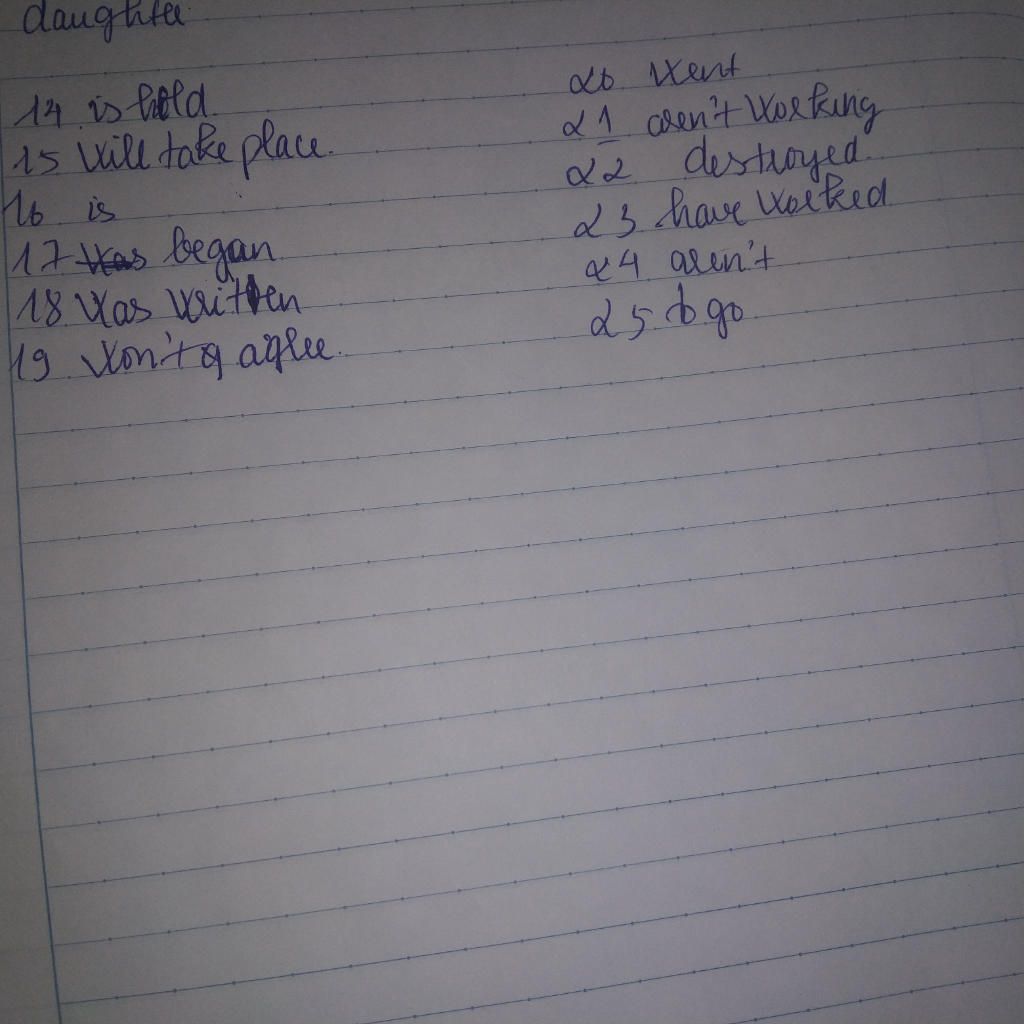 daughter
14 is held
15 Will take place.
16 is
17 was began
18 Was Written
19 Won't agree.
20 Went
21 aren't Working
22 destroyed.
23 have Worked
24 aren't
25 to go